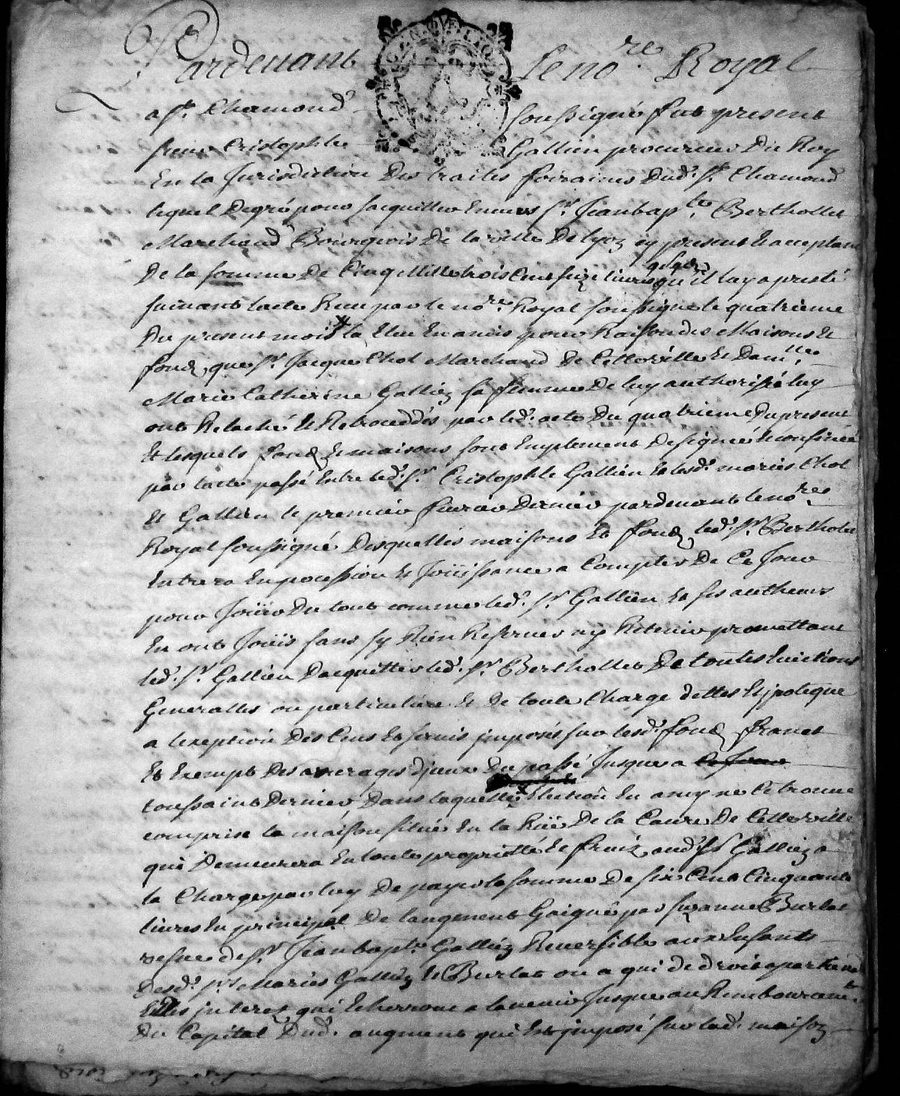 Pardevant le no.re Royal
a S.t Chamond soussigné fut present
sieur Cristophle Gallien procureur Du Roy
En la Jurisdiction Des traites foraines Dud. S.t Chamond
lequel Degré pour sacquitter Envers S.r Jean bap.te Berthollet
Marchand Bourgeois De la ville De lyon cy present & acceptant
De la somme De Cinq Mille trois Cens seize livres qu'il luy a presté
suivant lacte Receu par le no.re Royal soussigné le quatrieme
Du present mois la pour Raison des Maisons &
fond, que S.r Jacque Chol Marchand De Cette ville & Dam.lle
Marie Catherine Gallien sa femme De luy authorisée luy
ont Relaché & Retrocedés par led. acte Du quatrieme Du present
& lesquels fond & maisons sont Emplement Designés & confinés
par lacte passé Entre led. S.r Cristophle Gallien & lesd. mariés Chol
& Gallien le premier fevrier Dernier pardevant le no.re
Royal soussigné Desquelles maisons & fond, led. S.r Bertholet
Entrera En possession & Joüissance a Compter De Ce Jour
pour Joüir Du tout comme led. S.r Gallien & ses autheurs
En ont Joüis sans sy Rien Reserver ny Retenir promettant
led. S.r Gallien Dacquitter led. S.r Berthollet De toutes Evictions
Generalles ou particuliere & De toute Charge debtes & ypoteque
a lexeption Des Cens & servis imposés sur lesd. fond, francs
& Exempt Des arrerages Diceux Du passé Jusques a ce Jour
toussaint Dernier Dans laquelle Election En amy ne Ce trouve
comprise la maison située En la Rüe De la Caure De Cette ville
qui Demeurera En toute proprietté & fruit, aud. S.r Gallien a
la Charge par luy De payer la somme De six Cent Cinquante
livres En principal De laugment Gaigné par Suzanne Burlat
vefve de S.r Jean bap.te Gallien Reversible aux Enfants
Desd. S.r Mariés Gallien & Burlat ou a qui de droit apartiendra
& les interest qui Echerront a lavenir Jusque au Rembourcem.t
Du Capital Dud. augment qui Est imposé sur lad. maison